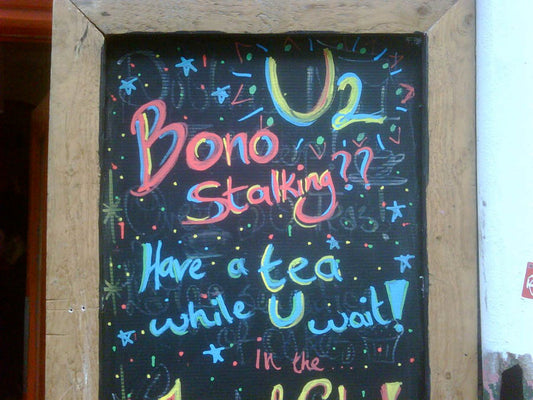 U2
Bono
Stalking??
Have a tea
while U wait!
In the...